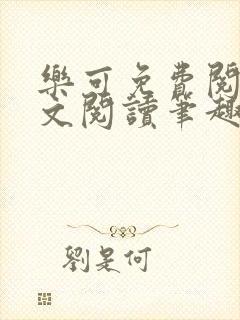 樂可免費閱
文閱讀筆趣
劉是何